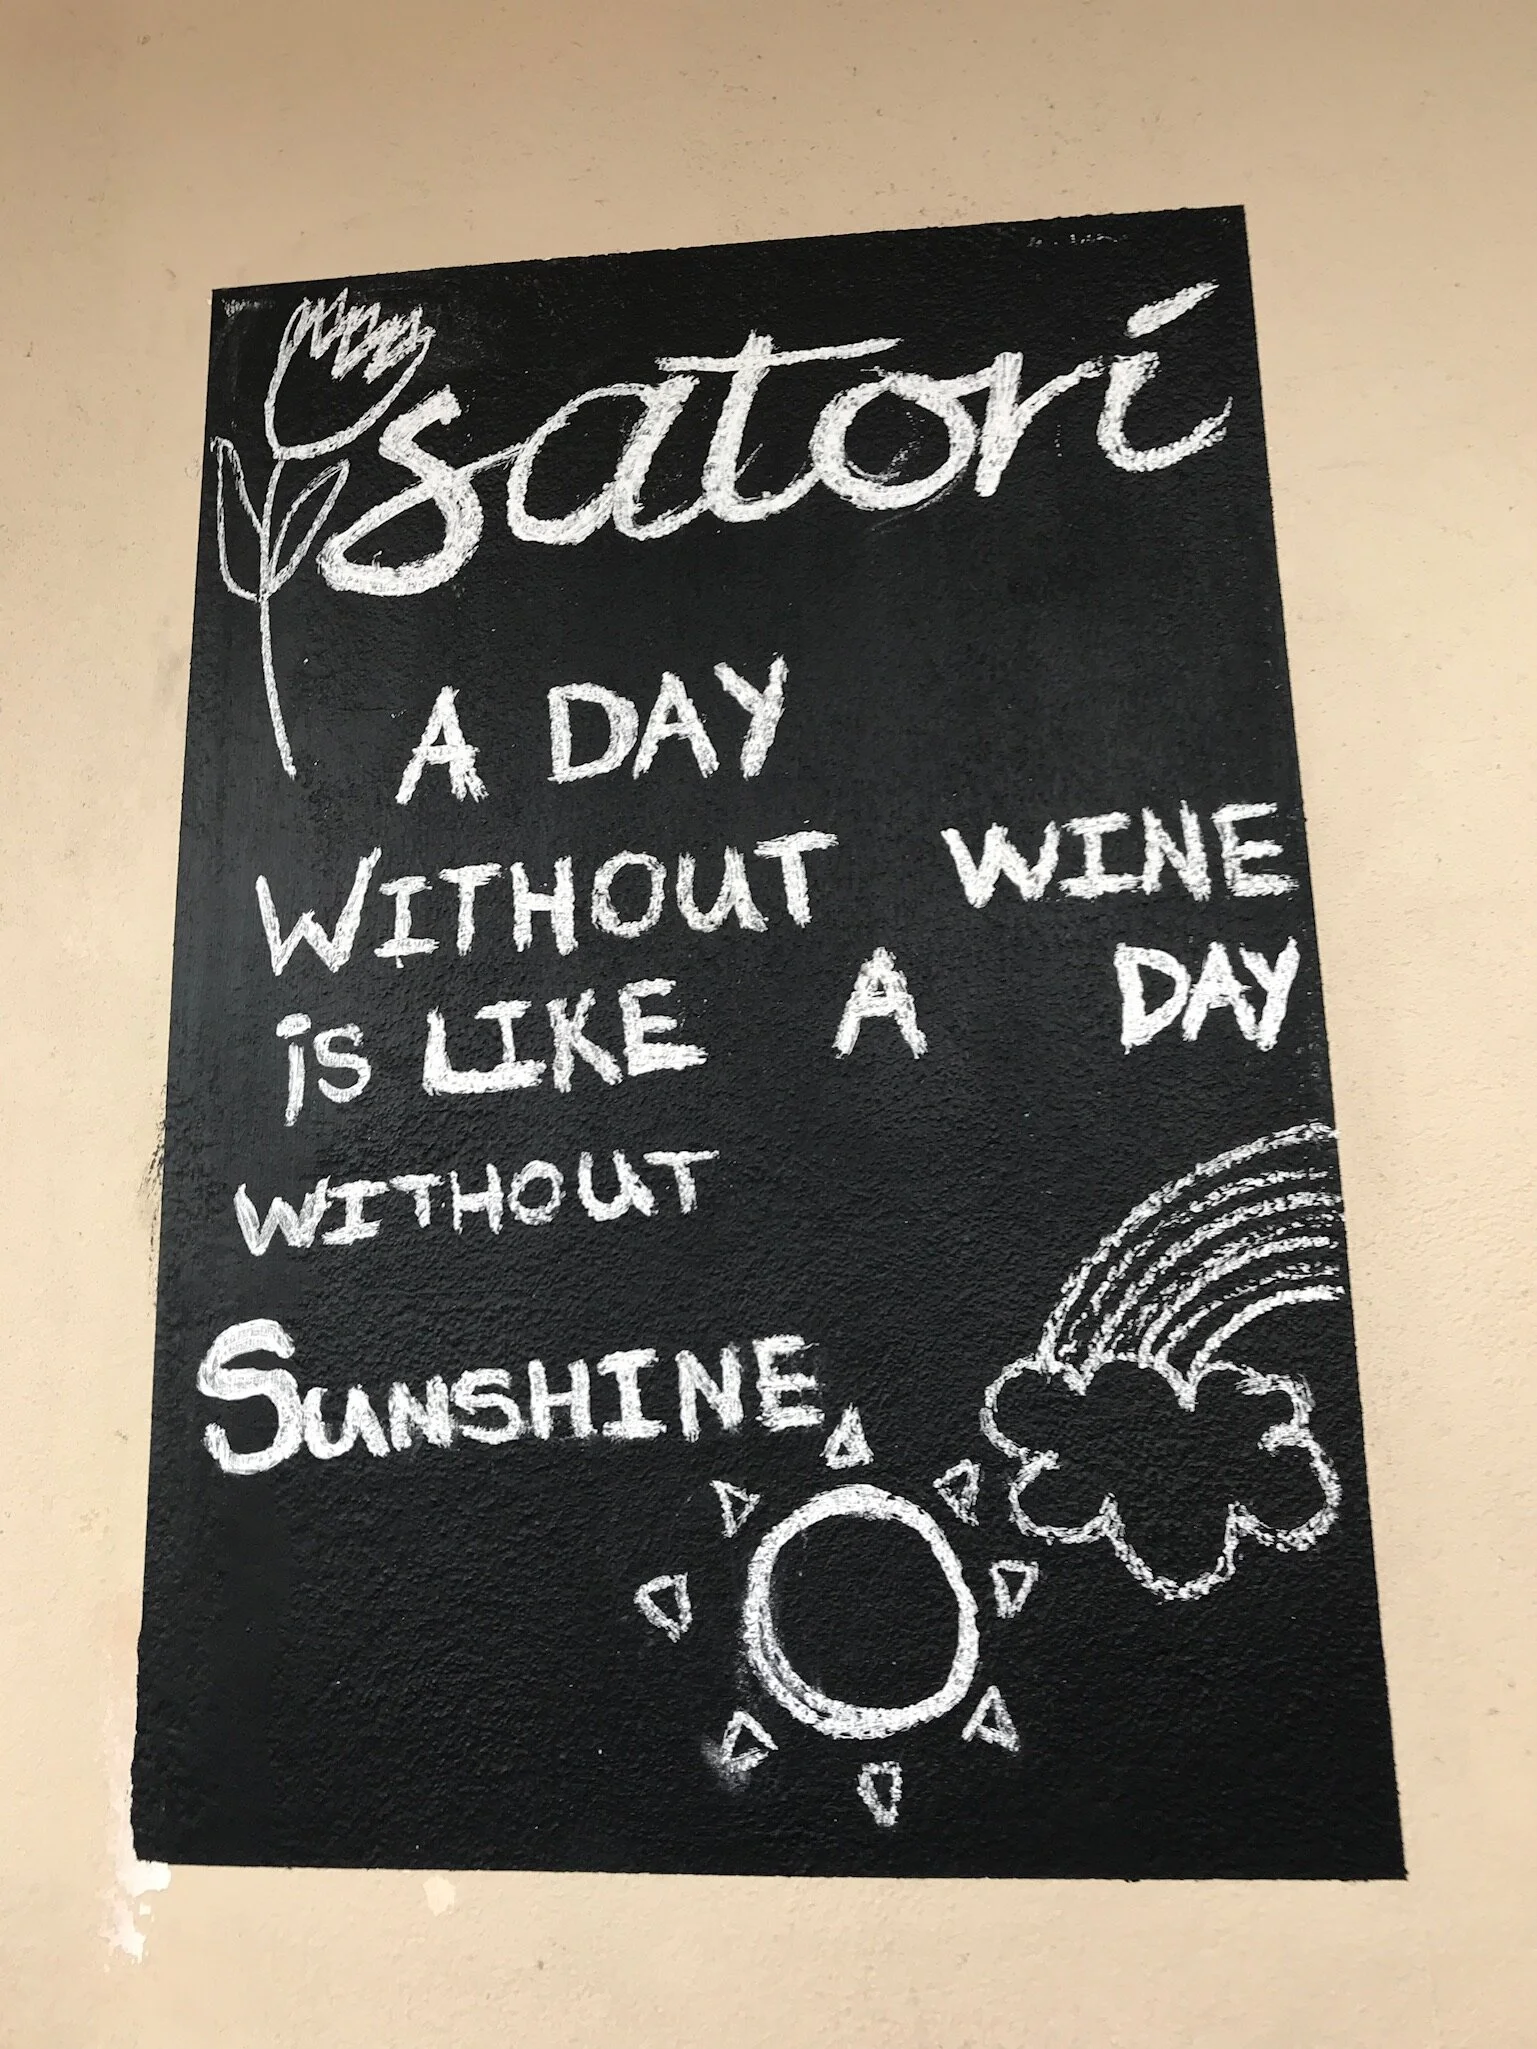 satori
A DAY
WITHOUT WINE
is LIKE A DAY
WITHOUT
SUNSHINE